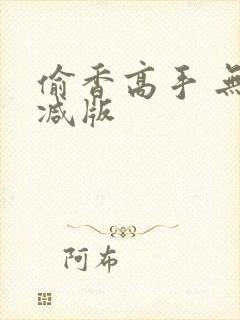 偷香高手 無
减版
阿布